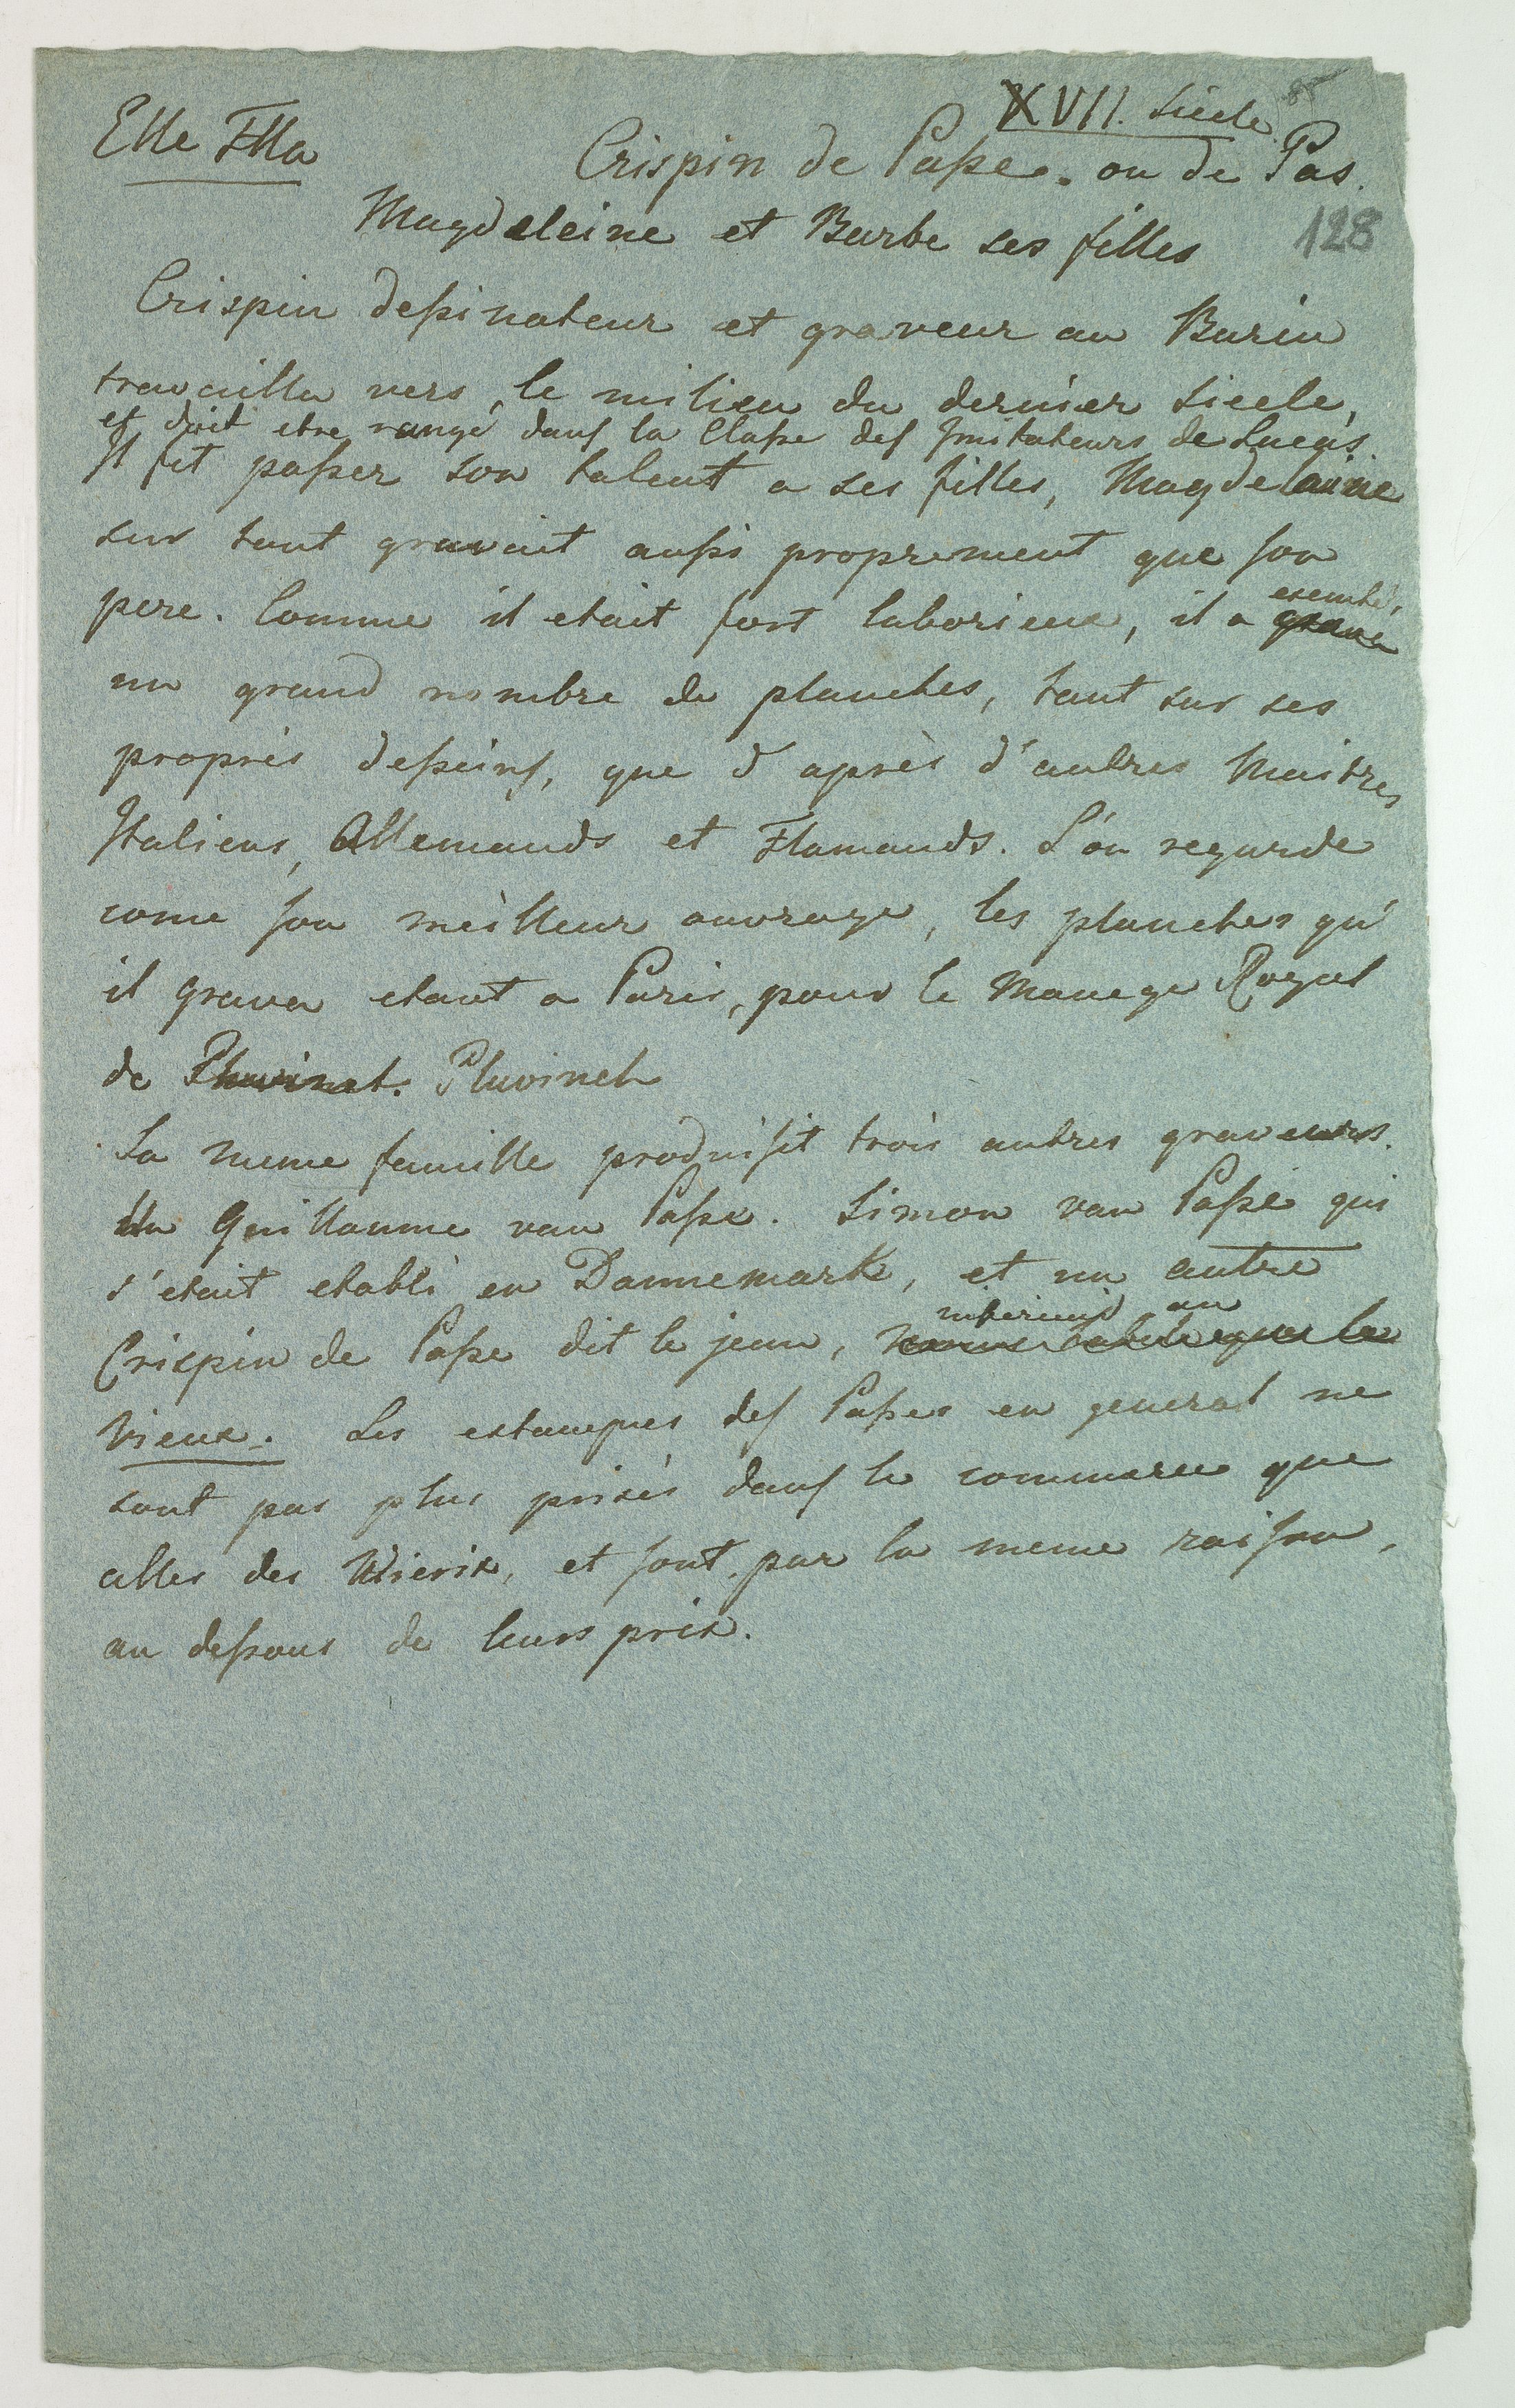 XVII. Siecle 85
Elle Flla
Crispin de Paſse. ou de Pas.
Magdeleine et Barbe ses filles 128
Crispin deſsinateur et graveur au Burin
travailla vers le milieu du dernier siecle,
et doit etre rangé danſ la Claſse deſ Imitateurs de Lucas.
Il fit paſser son talent a ses filles, Magdelaine
sur tout gravait auſsi proprement que ſon
pere. Comme il etait fort laborieux, il a executé, gravé
un grand nombre de planches, tant sur ses
propres deſseinſ, que d'après d'autres Maitres
Italiens, Allemands et Flamands. L'on regarde
come ſon meilleur ouvrage, les planches qu'
il grava etant a Paris, pour le Manege Royal
de Pluvinet. Pluvinel
La meme famille produiſit trois autres graveurs.
Un Guillaume van Paſse. Simon van Paſse qui
s'etait etabli en Dannemark, et un autre
Crispin de Paſse dit le jeune, inferieur au
moins habile que le
vieux. Les estampes deſ Paſses en general ne
sont pas plus prisés danſ le commerce que
celles des Wierix, et ſont par la meme raiſon,
au deſsous de leurs prix.